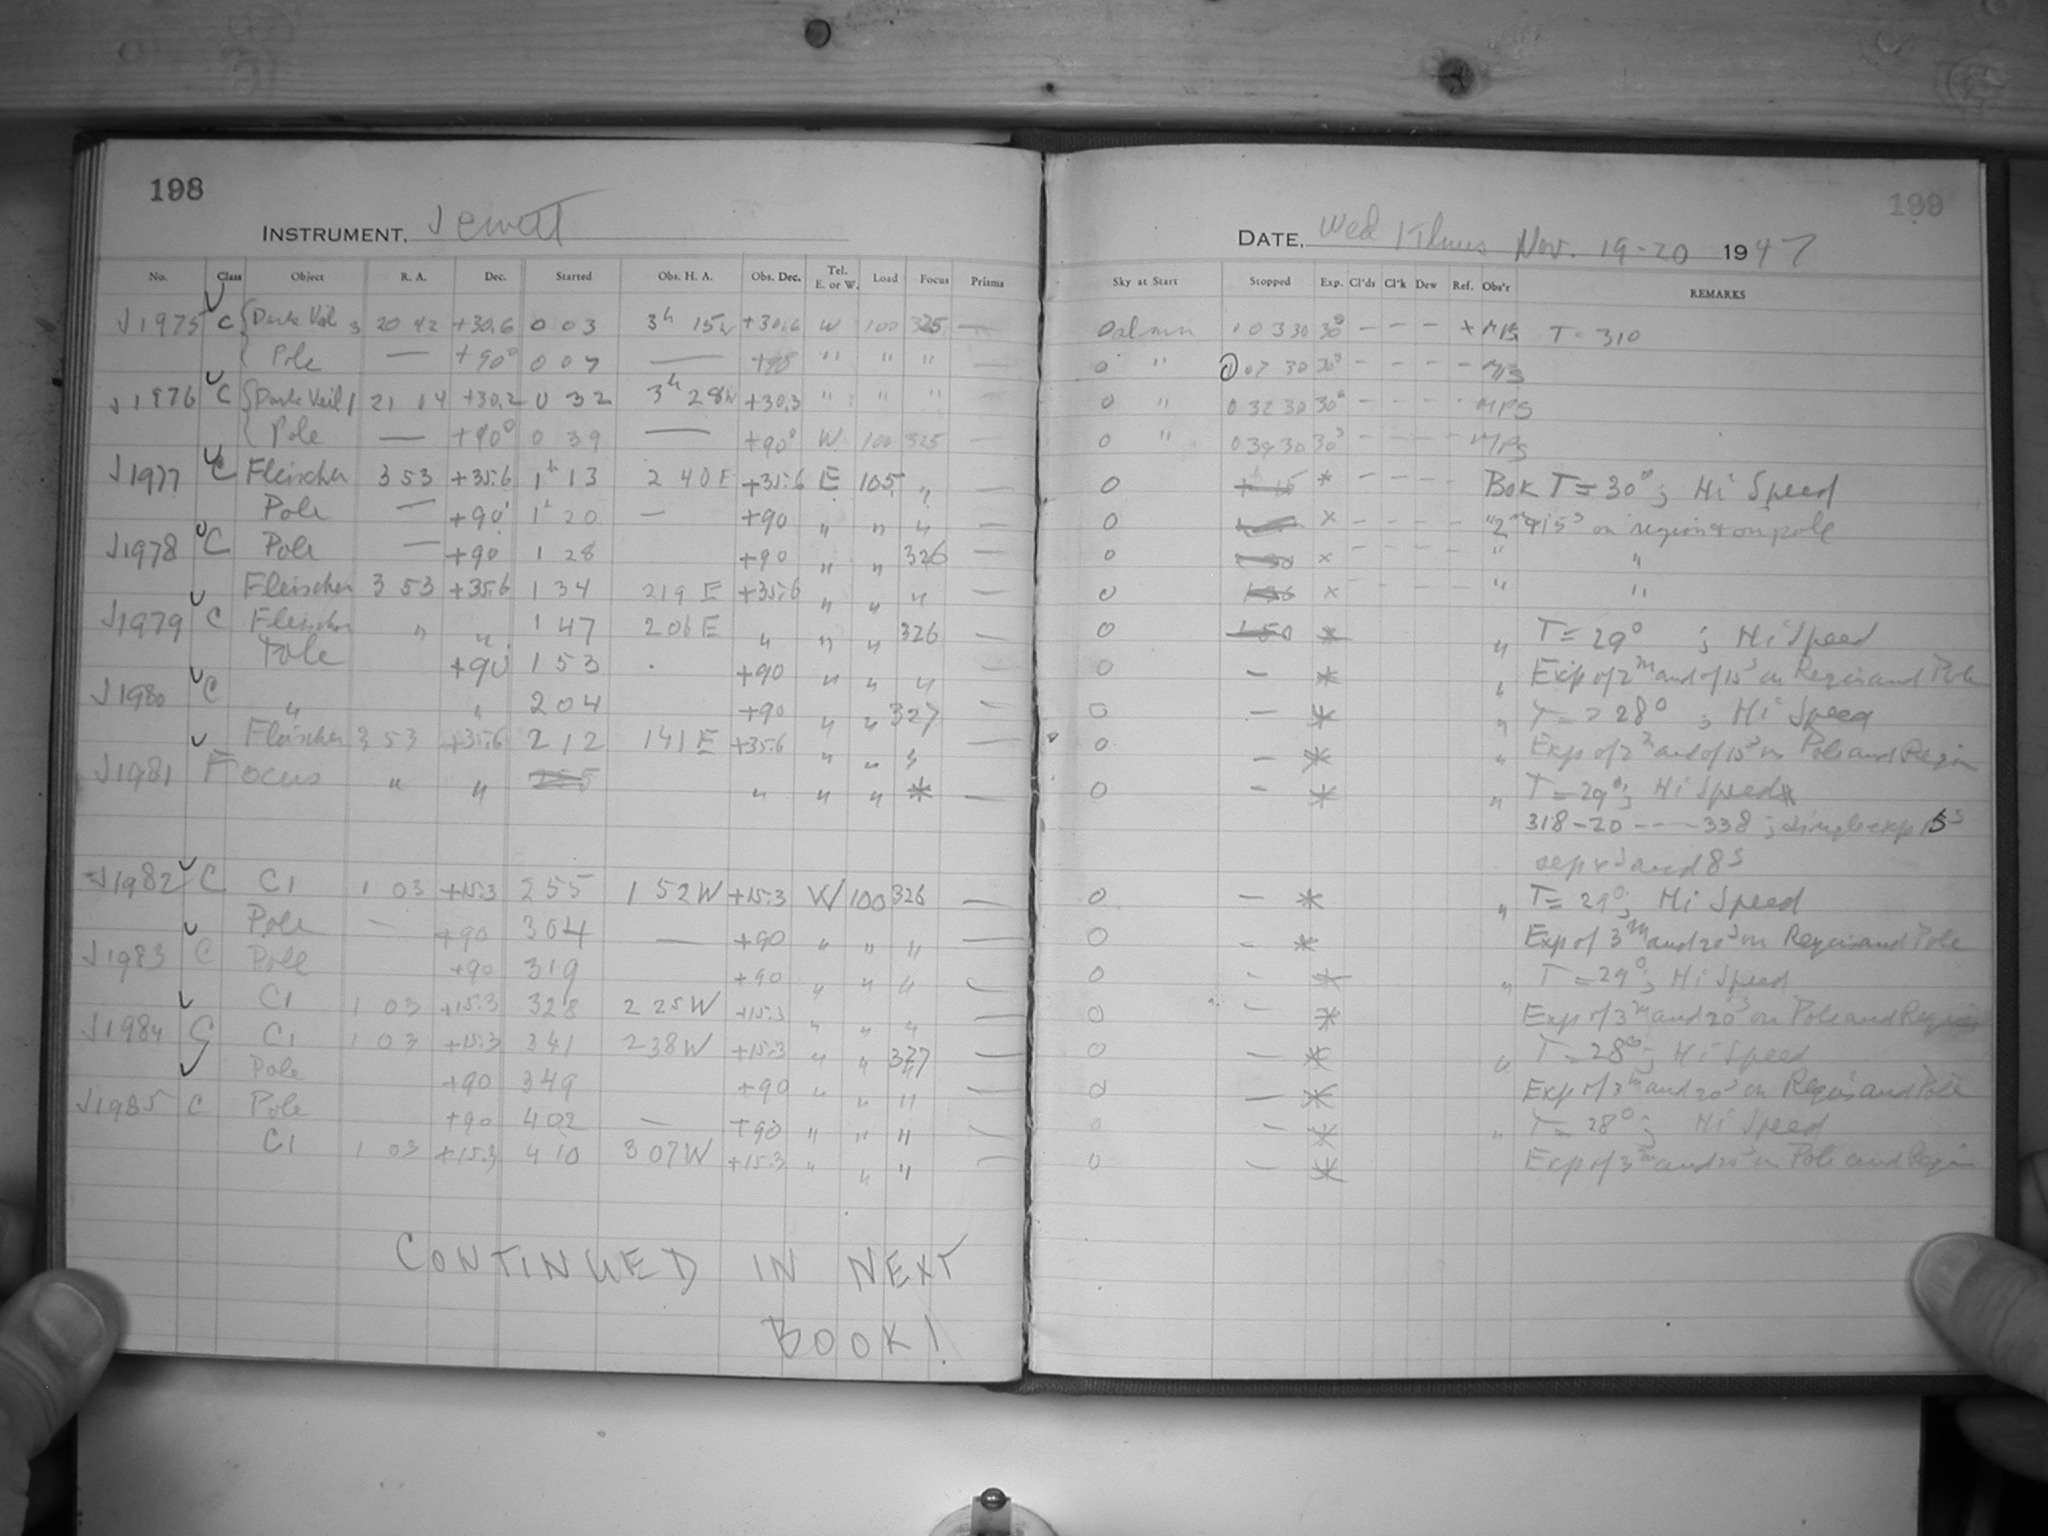 198
INSTRUMENT, Jewett
No. Class Object R. A. Dec. Started Obs. H. A. Obs. Dec. Tel. E. or W. Load Focus Prisms
J1975 C Dark Veil 3 20 42 +30.6 0 03 3h 15W +30.6 W 100 325 —
Pole — +90° 0 07 — +90 " " " —
J1976 C Dark Veil 1 21 14 +30.2 0 32 3h 28W +30.3 " " " —
Pole — +90° 0 39 — +90° W 100 325 —
J1977 C Fleischer 3 53 +35.6 1h 13 2 40E +35.6 E 105 " —
Pole — +90° 1h 20 — +90 " " " —
J1978 C Pole — +90 1 28 +90 " " 326 —
Fleischer 3 53 +35.6 1 34 2 19 E +35.6 " " " —
J1979 C Fleischer " " 1 47 2 06 E " " " 326 —
Pole +90 1 53 +90 " " "
J1980 C " " 2 04 +90 " " 327
Fleischer 3 53 +35.6 2 12 1 41 E +35.6 " " " —
J1981 Focus " " " " " * —
J1982 C C1 1 03 +15.3 2 55 1 52W +15.3 W 100 326 —
Pole — +90 3 04 — +90 " " " —
J1983 C Pole +90 3 19 +90 " " " —
C1 1 03 +15.3 3 28 2 25W +15.3 " " " —
J1984 C C1 1 03 +15.3 3 41 2 38W +15.3 " " 327 —
Pole +90 3 49 +90 " " " —
J1985 C Pole +90 4 02 — +90 " " " —
C1 1 03 +15.3 4 10 3 07W +15.3 " " " —
CONTINUED IN NEXT
BOOK!
199
DATE, Wed / Thurs Nov. 19-20 1947
Sky at Start Stopped Exp. Cl'ds Cl'k Dew Ref. Obs'r REMARKS
0 03 30 30s — — — T = 310
0 " 0 07 30 30s — — — —
0 " 0 32 30 30s — — — - MPS
0 " 0 39 30 30s — — — - MPS
0 * — — — — Bok T = 30°; Hi Speed
0 x — — — — " 2m & 15s on region & on pole
0 x — — — — " "
0 x — — — — " "
0 * " T = 29° ; Hi Speed
0 — * " Exp of 2m and of 15s on Region and Pole
0 — * " T = 28° ; Hi Speed
0 — * " Exp of 2m and of 15s on Pole and Region
0 — * " T = 29°; Hi Speed
318-20 ---- 338 ; single exp 15s
sep 4s and 8s
0 — * " T = 29°; Hi Speed
0 — * Exp of 3m and 20s on Region and Pole
0 — * " T = 29°; Hi Speed
0 — * Exp of 3m and 20s on Pole and Region
0 — * " T = 28°; Hi Speed
0 — * Exp of 3m and 20s on Region and Pole
0 — * " T = 28°; Hi Speed
0 — * Exp of 3m and 20s on Pole and Region